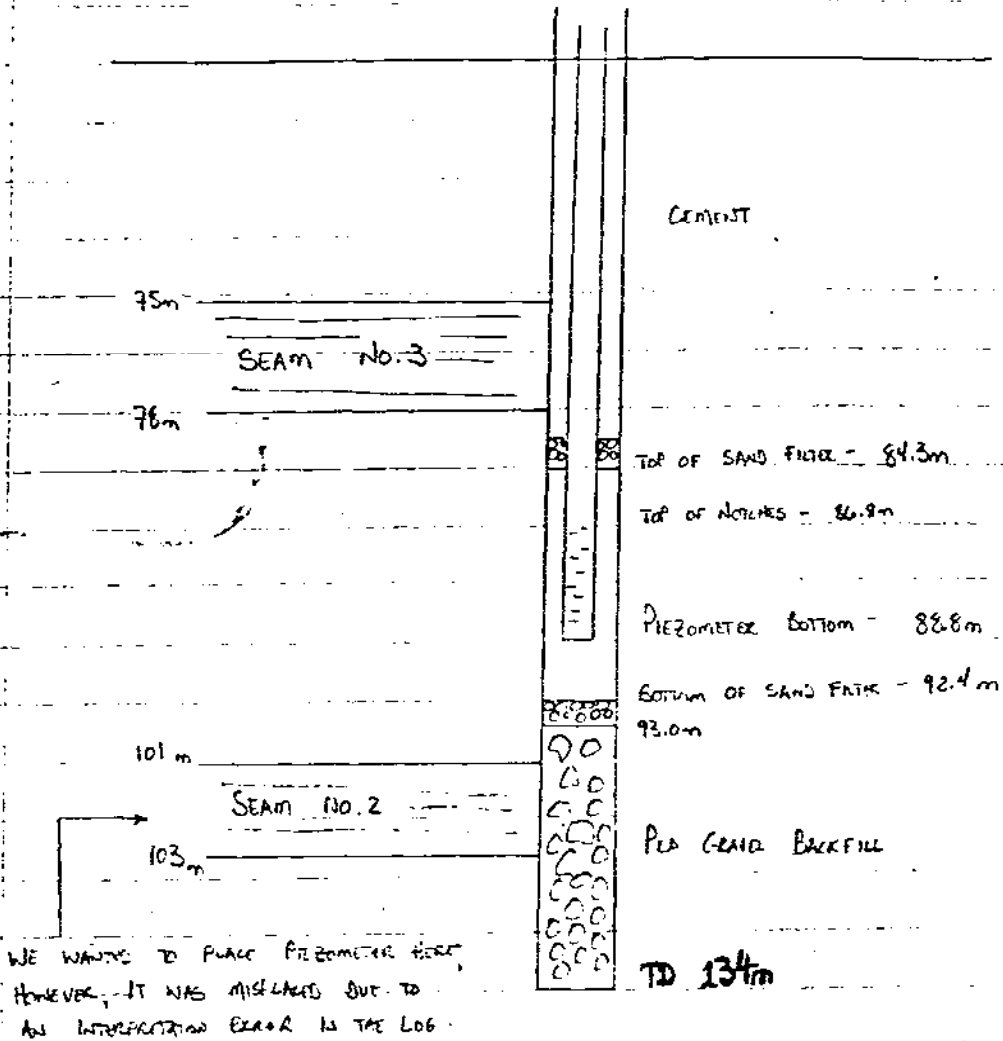 CEMENT
75m
SEAM No. 3
78m
TOP OF SAND FILTER - 84.3m
TOP OF NOTCHES - 86.8m
PIEZOMETER BOTTOM - 88.8m
BOTTOM OF SAND FILTER - 92.4 m
93.0m
101 m
SEAM NO. 2
103m
PEA GRAVEL BACKFILL
WE WANTED TO PLACE PIEZOMETER HERE,
HOWEVER, IT WAS MISPLACED DUE TO
AN INTERPRETATION ERROR IN THE LOG.
TD 134m